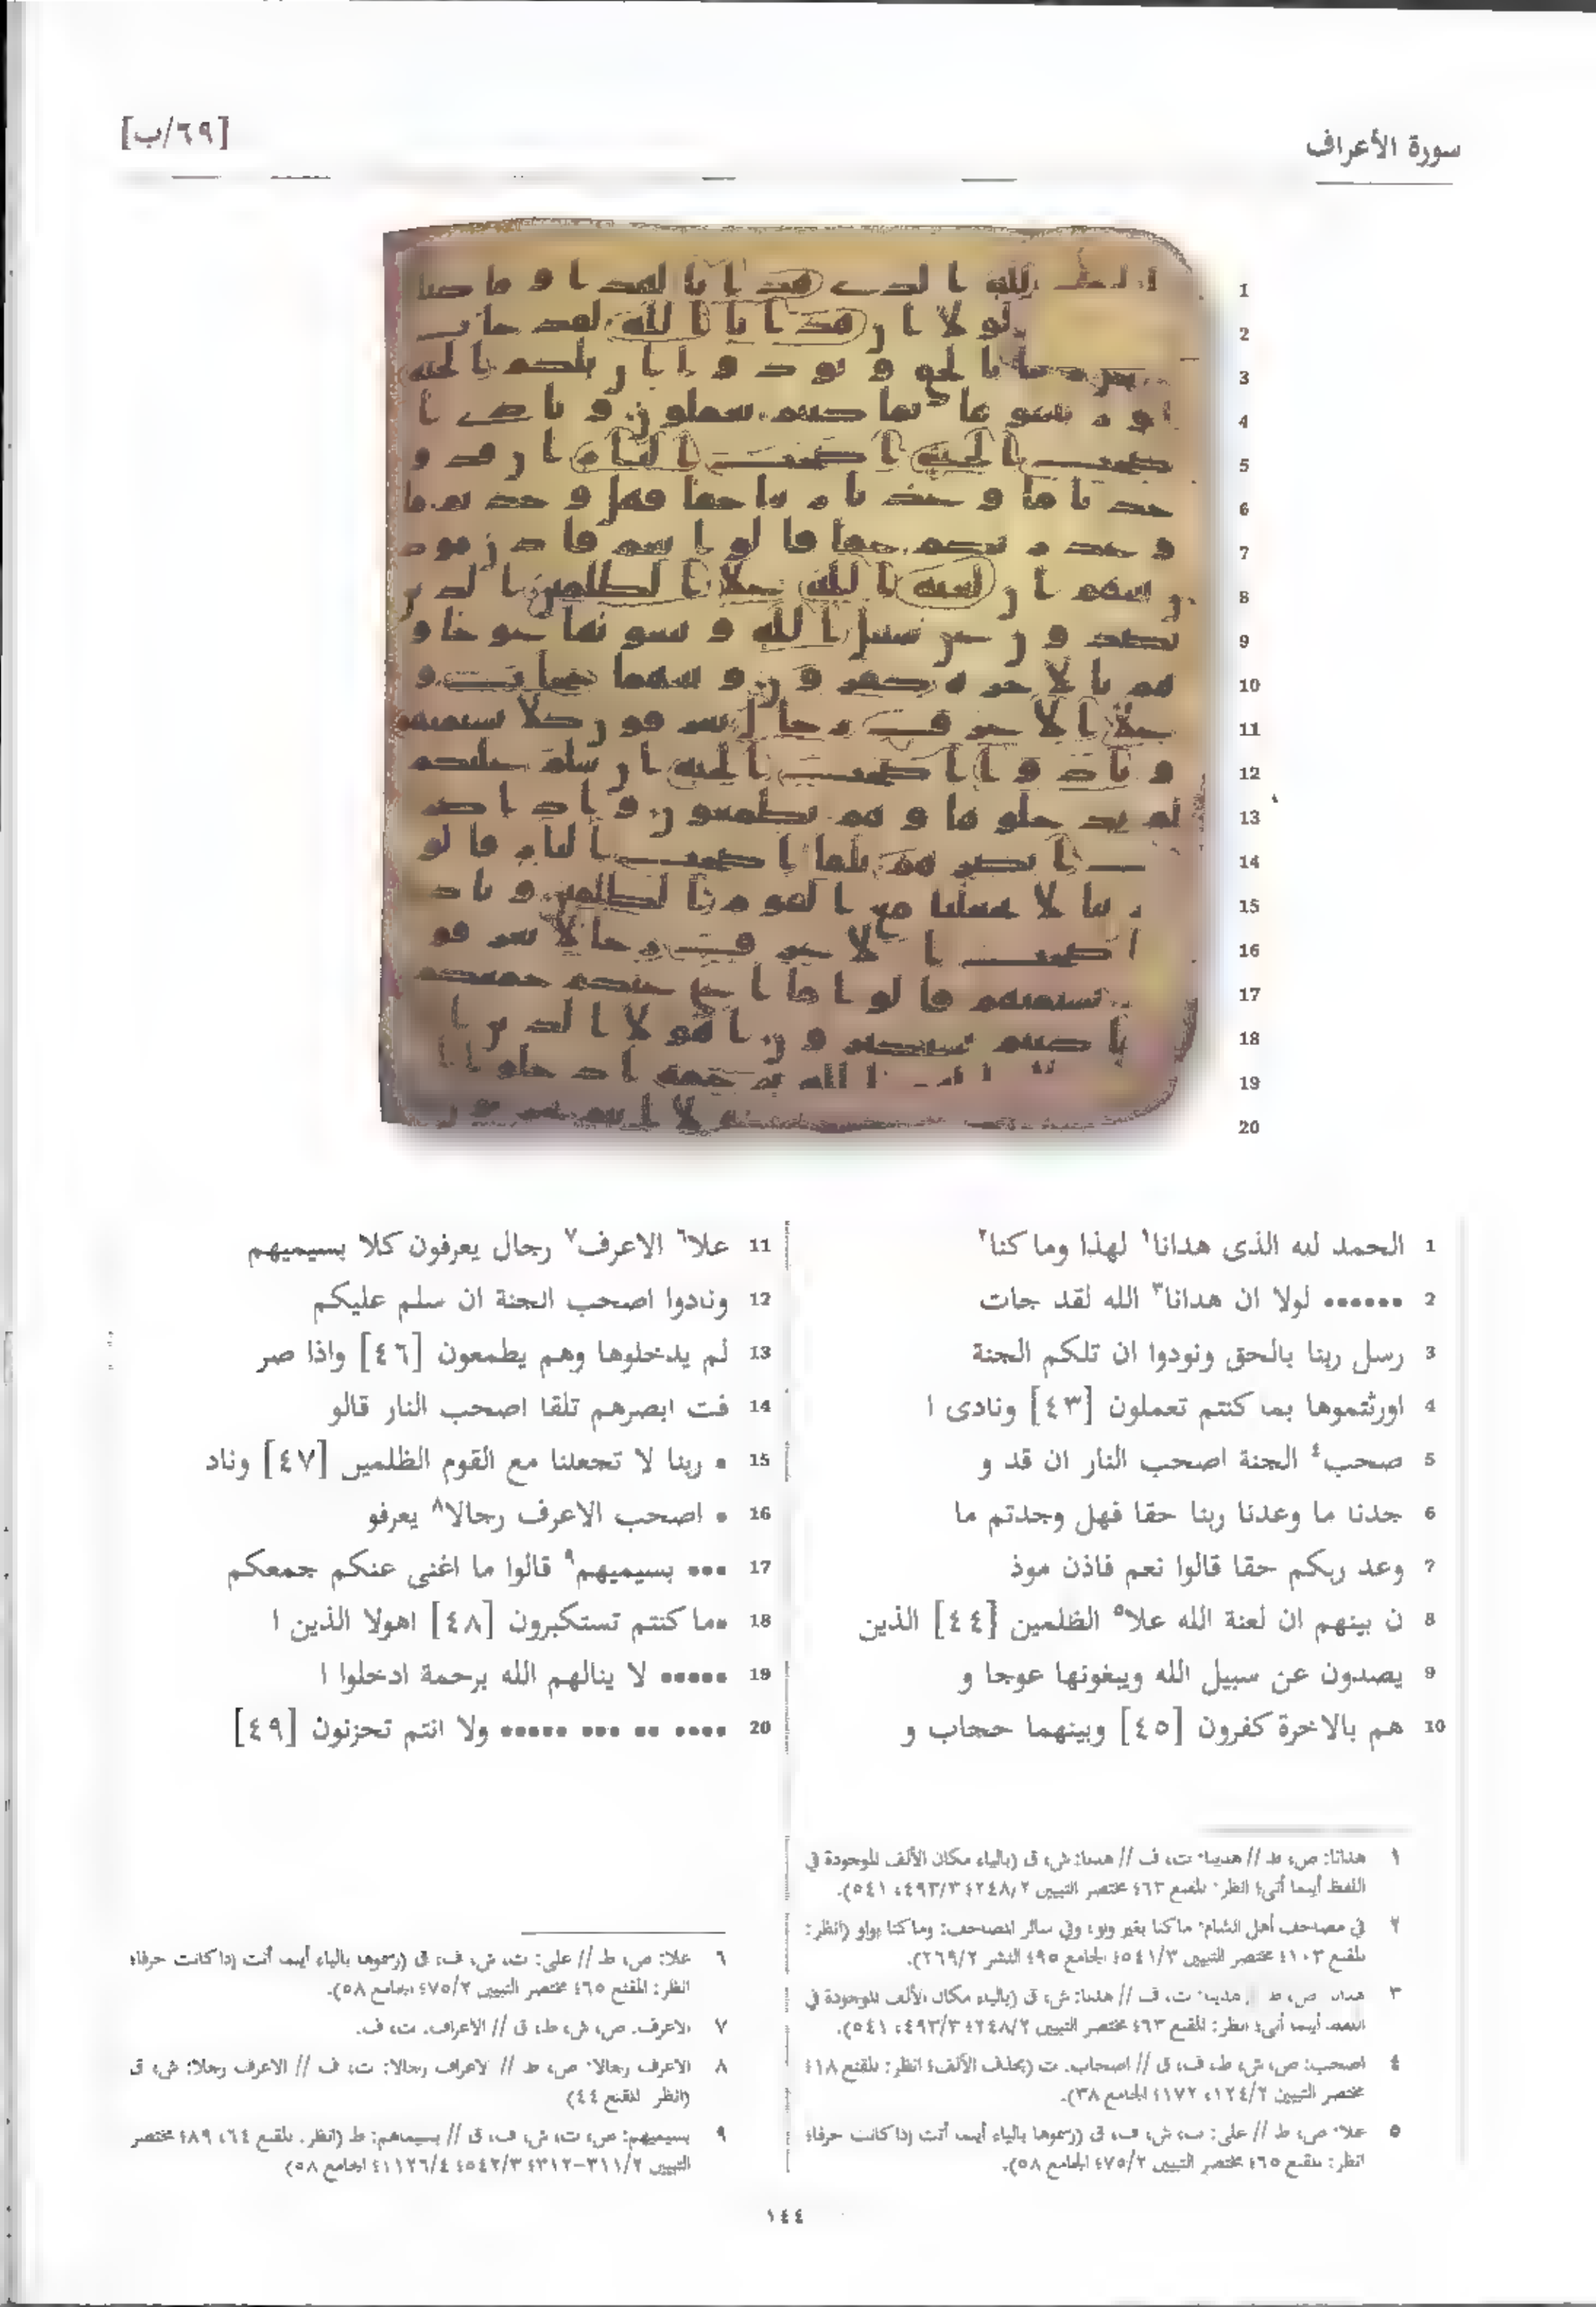 سورة الأعراف
[٦٩/ب]
1 الحمد لله الذى هدانا١ لهذا وما كنا٢
2 •••••• لولا ان هدانا٣ الله لقد جات
3 رسل ربنا بالحق ونودوا ان تلكم الجنة
4 اورثتموها بما كنتم تعملون [٤٣] ونادى ا
5 صحب٤ الجنة اصحب النار ان قد و
6 جدنا ما وعدنا ربنا حقا فهل وجدتم ما
7 وعد ربكم حقا قالوا نعم فاذن موذ
8 ن بينهم ان لعنة الله علا٥ الظلمين [٤٤] الذين
9 يصدون عن سبيل الله ويبغونها عوجا و
10 هم بالاخرة كفرون [٤٥] وبينهما حجاب و
11 علا٦ الاعرف٧ رجال يعرفون كلا بسيميهم
12 ونادوا اصحب الجنة ان سلم عليكم
13 لم يدخلوها وهم يطمعون [٤٦] واذا صر
14 فت ابصرهم تلقا اصحب النار قالو
15 • ربنا لا تجعلنا مع القوم الظلمين [٤٧] وناد
16 • اصحب الاعرف رجالا٨ يعرفو
17 ••• بسيميهم٩ قالوا ما اغنى عنكم جمعكم
18 •ما كنتم تستكبرون [٤٨] اهولا الذين ا
19 ••••• لا ينالهم الله برحمة ادخلوا ا
20 •••• •• ••• ••••• ولا انتم تحزنون [٤٩]
١ هدانا: ص، ط // هدينا: ت، ف // هدىنا: ش، ق (بالياء مكان الألف الموجودة في
اللفظ أينما أتى؛ انظر: المقنع ٦٣؛ مختصر التبيين ٢٤٨/٢؛ ٤٩٣/٣، ٥٤١).
٢ في مصاحف أهل الشام: ما كنا بغير واو، وفي سائر المصاحف: وما كنا بواو (انظر:
المقنع ١٠٣؛ مختصر التبيين ٥٤١/٣؛ الجامع ٩٥؛ النشر ٢٦٩/٢).
٣ هدانا: ص، ط // هدينا: ت، ف // هدىنا: ش، ق (بالياء مكان الألف الموجودة في
اللفظ أينما أتى؛ انظر: المقنع ٦٣؛ مختصر التبيين ٢٤٨/٢؛ ٤٩٣/٣، ٥٤١).
٤ اصحب: ص، ش، ط، ف، ق // اصحاب: ت (بحذف الألف؛ انظر: المقنع ١٨؛
مختصر التبيين ١٢٤/٢، ١٧٢؛ الجامع ٣٨).
٥ علا: ص، ط // على: ت، ش، ف، ق (رسموها بالياء أينما أتت إذا كانت حرفا؛
انظر: المقنع ٦٥؛ مختصر التبيين ٧٥/٢؛ الجامع ٥٨).
٦ علا: ص، ط // على: ت، ش، ف، ق (رسموها بالياء أينما أتت إذا كانت حرفا؛
انظر: المقنع ٦٥؛ مختصر التبيين ٧٥/٢؛ الجامع ٥٨).
٧ الاعرف: ص، ش، ط، ق // الاعراف: ت، ف.
٨ الاعرف رجالا: ص، ط // الاعراف رجالا: ت، ف // الاعرف رجلا: ش، ق
(انظر المقنع ٤٤)
٩ بسيميهم: ص، ت، ش، ف، ق // بسيماهم: ط (انظر: المقنع ٦٤، ٨٩؛ مختصر
التبيين ٣١١/٢-٣١٢؛ ٥٤٢/٣؛ ١١٢٦/٤؛ الجامع ٥٨)
١٤٤